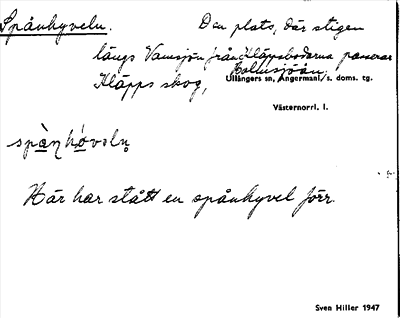 Spånhyveln. Den plats, där stigen
längs Vamsjön från Kläppsbodarna passerar
Kläpps skog,
Ullångers sn, Ångermanl:s. doms. tg.
Västernorrl. l.
spàn hövoln
Här har stått en spånhyvel förr.
Sven Hiller 1947